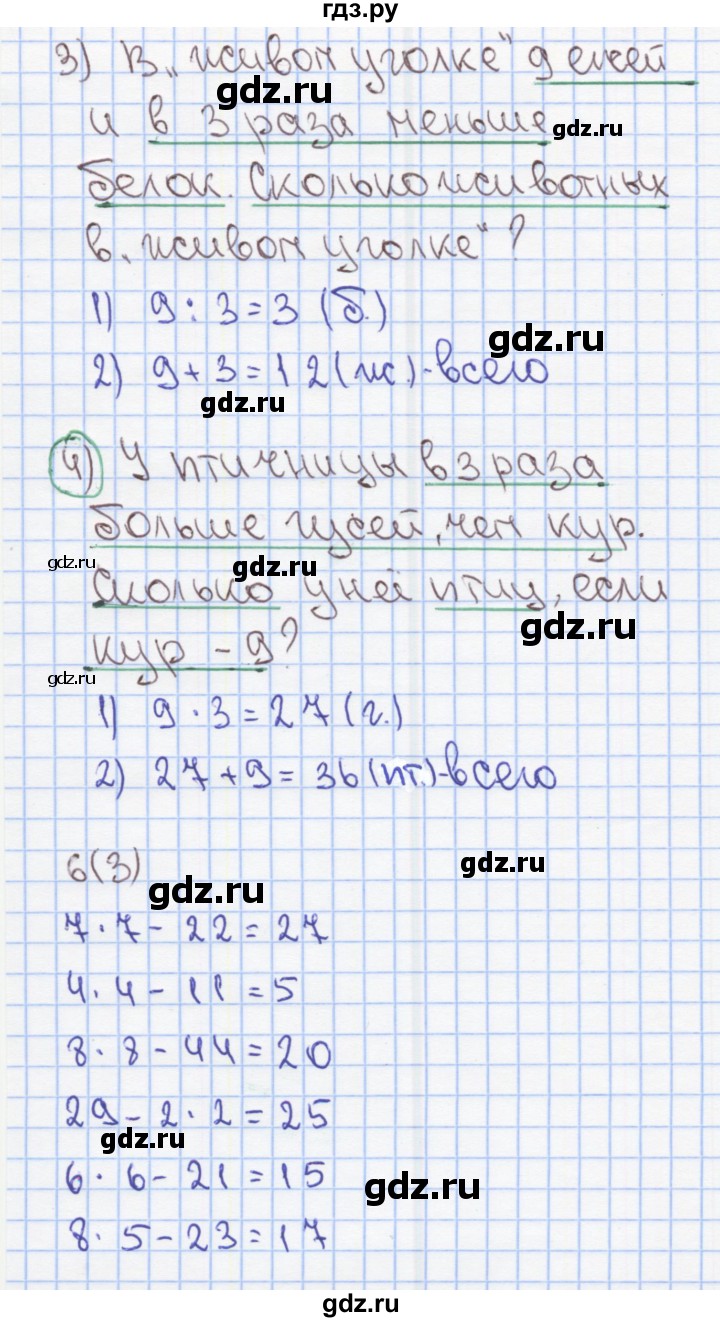 гдз.ру
3) В „живом уголке" 9 ежей
gdz.ru
и в 3 раза меньше
gdz.ru
белок. Сколько животных
в „живом уголке"?
1) 9 : 3 = 3 (б.)
gdz.ru
2) 9 + 3 = 12 (ж.) - всего
gdz.ru
4) У птичницы в 3 раза
больше гусей, чем кур.
gdz.ru
gdz.ru
Сколько у неё птиц, если
gdz.ru
кур - 9?
gdz.ru
1) 9 · 3 = 27 (г.)
2) 27 + 9 = 36 (пт.) - всего
6(3)
gdz.ru
gdz.ru
7 · 7 - 22 = 27
4 · 4 - 11 = 5
8 · 8 - 44 = 20
29 - 2 · 2 = 25
gdz.ru
6 · 6 - 21 = 15
gdz.ru
8 · 5 - 23 = 17
gdz.ru